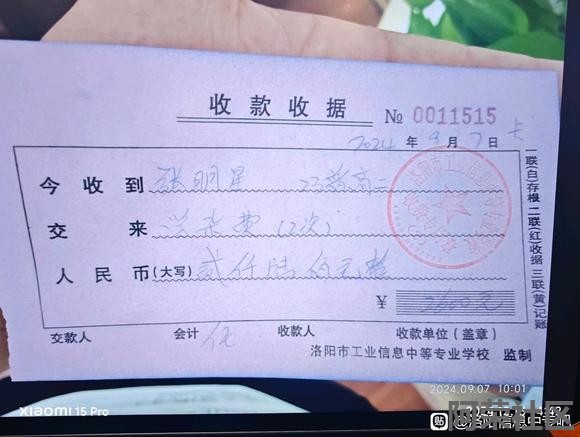 收款收据 № 0011515
2024 年 9 月 7 日 卡
今收到 张明星 23普高二
交来 学杂费(2次)
人民币(大写) 贰仟陆佰元整
¥ 2600元
交款人 会计 收款人 收款单位(盖章)
洛阳市工业信息中等专业学校 监制
一联(白)存根 二联(红)收据 三联(黄)记账
洛阳市工业信息中等专业学校
xiaomi 15 Pro
2024.09.07 10:01